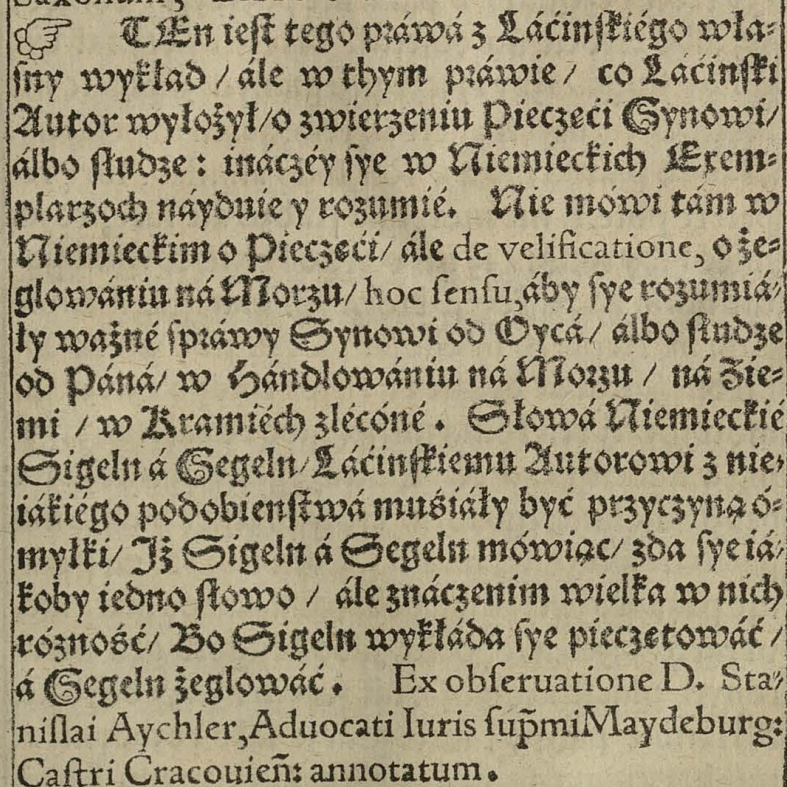 ☞ TEn iest tego práwá z Láćinskiégo wła-
sny wykład / ále w thym práwie / co Láćinski
Autor wyłożył / o zwierzeniu Pieczęći Synowi /
álbo słudze : ináczéy sye w Niemieckich Exem-
plarzoch náyduie y rozumié. Nie mówi tám w
Niemieckim o Pieczęći / ále de velificatione, o że-
glowániu ná Morzu / hoc sensu, áby sye rozumiá-
ły ważné spráwy Synowi od Oycá / álbo słudze
od Páná / w Hándlowániu ná Morzu / ná Zie-
mi / w Kramiéch zlécóné . Słowá Niemieckié
Sigeln á Segeln / Láćinskiemu Autorowi z nie-
iákiégo podobienstwá muśiáły być przyczyną ó-
myłki / Iż Sigeln á Segeln mówiąc / zda sye iá-
koby iedno słowo / ále znáczenim wielka w nich
rózność / Bo Sigeln wykłáda sye pieczętowáć /
á Segeln żeglowáć . Ex obseruatione D. Sta-
nislai Aychler, Aduocati Iuris sup̃mi Maydeburg:
Castri Cracouien̄: annotatum .